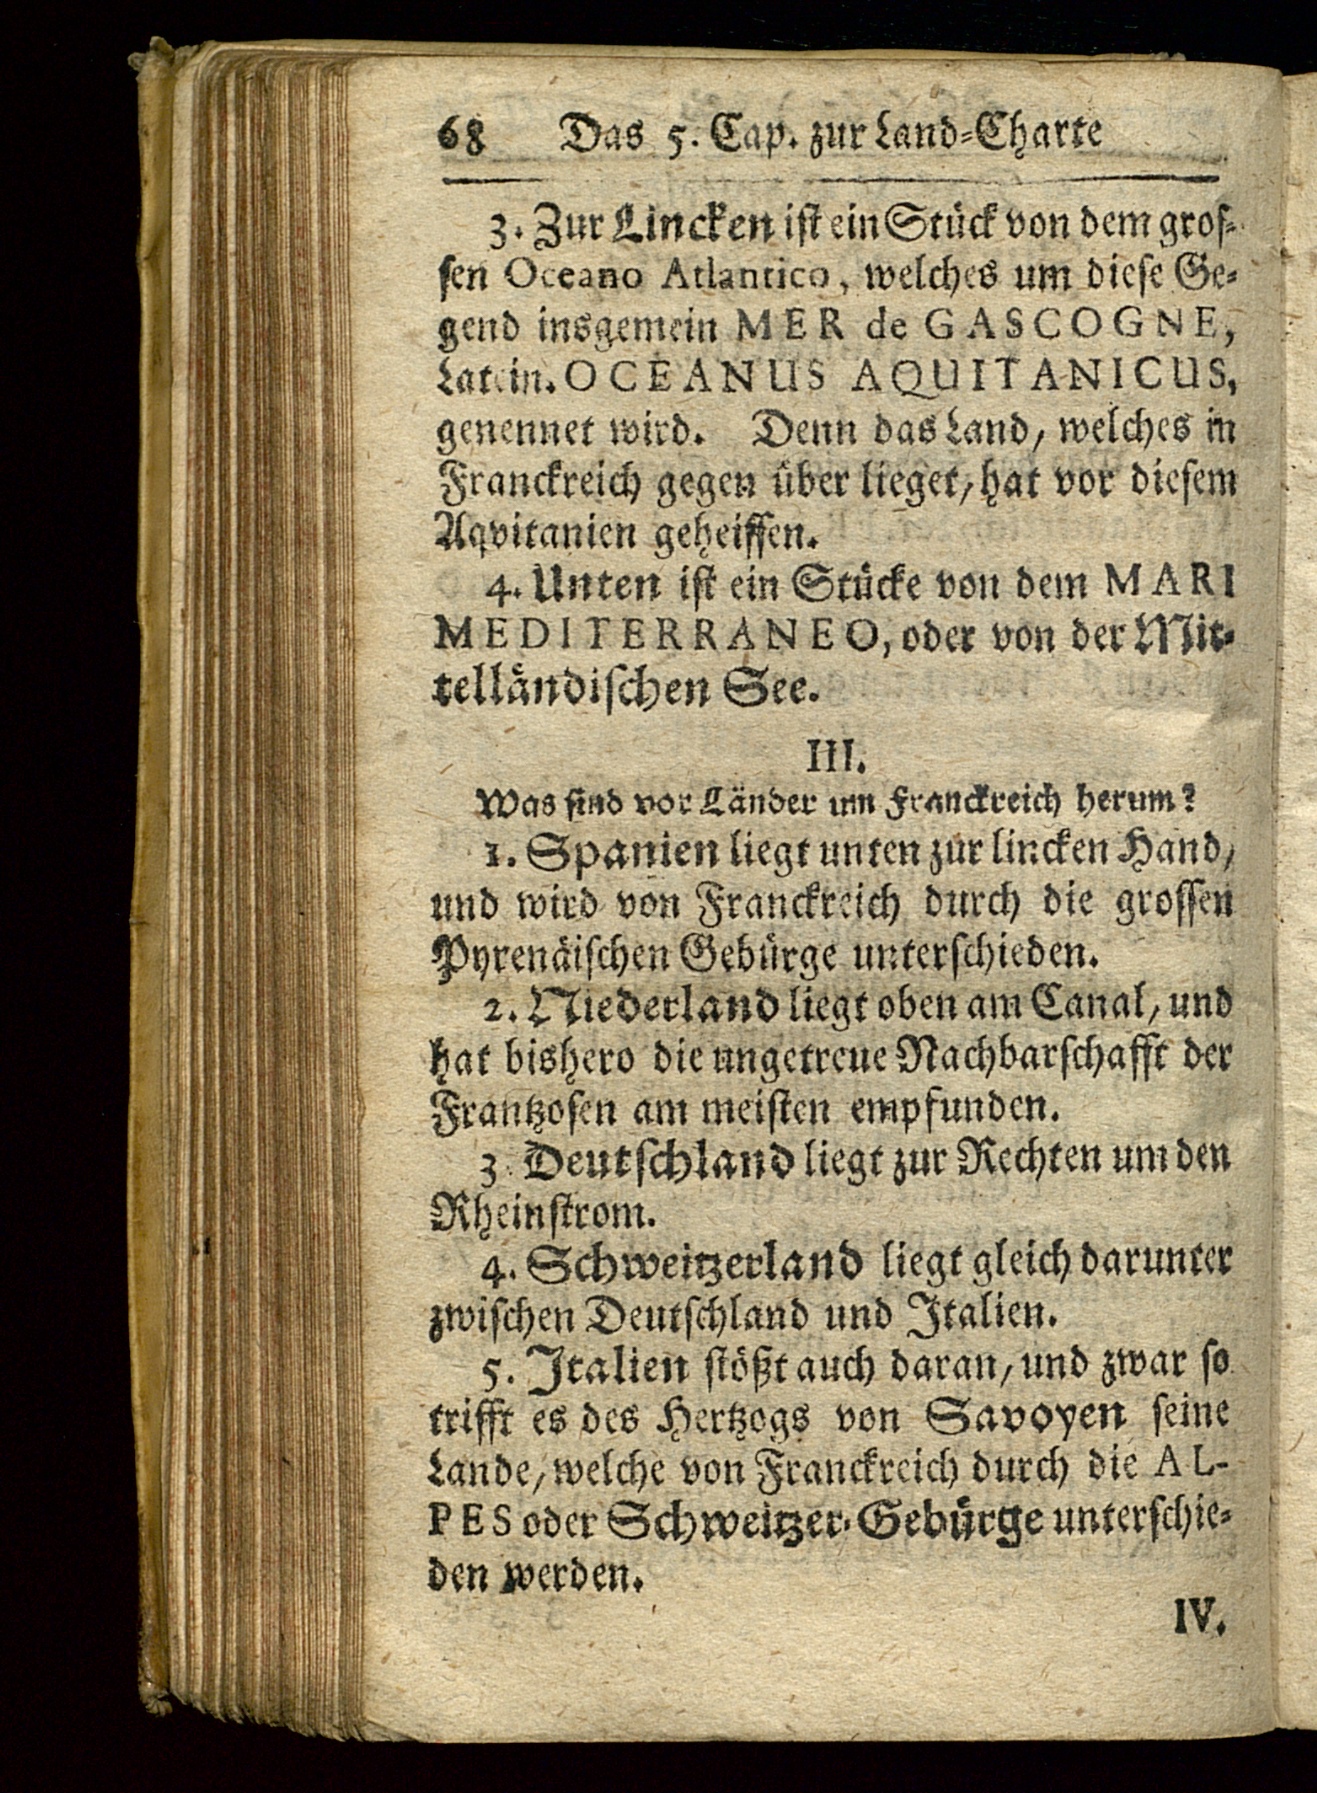 68 Das 5. Cap. zur Land-Charte
3. Zur Lincken ist ein Stück von dem gros-
sen Oceano Atlantico, welches um diese Ge-
gend insgemein MER de GASCOGNE,
Latein. OCEANUS AQUITANICUS,
genennet wird. Denn das Land, welches in
Franckreich gegen über lieget, hat vor diesem
Aqvitanien geheissen.
4. Unten ist ein Stücke von dem MARI
MEDITERRANEO, oder von der Mit-
telländischen See.
III.
Was sind vor Länder um Franckreich herum?
1. Spanien liegt unten zur lincken Hand,
und wird von Franckreich durch die grossen
Pyrenäischen Gebürge unterschieden.
2. Niederland liegt oben am Canal, und
hat bishero die ungetreue Nachbarschafft der
Frantzosen am meisten empfunden.
3. Deutschland liegt zur Rechten um den
Rheinstrom.
4. Schweitzerland liegt gleich darunter
zwischen Deutschland und Italien.
5. Italien stößt auch daran, und zwar so
trifft es des Hertzogs von Savoyen seine
Lande, welche von Franckreich durch die AL-
PES oder Schweitzer-Gebürge unterschie-
den werden.
IV.